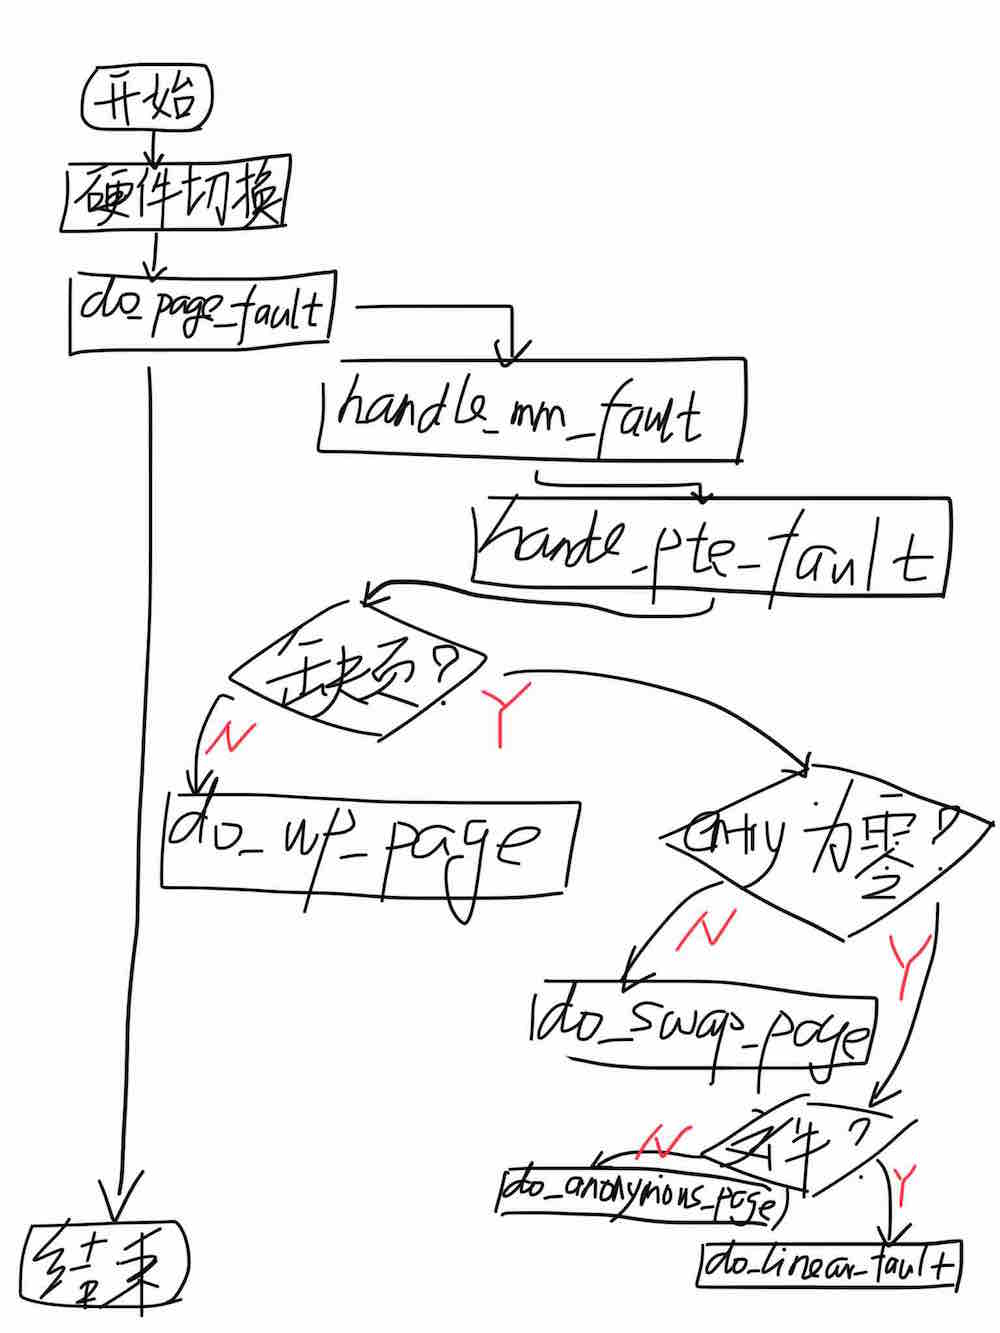 开始
硬件切换
do_page_fault
handle_mm_fault
handle_pte_fault
缺页?
N
Y
do_wp_page
entry为零?
N
Y
do_swap_page
文件?
N
Y
do_anonymous_page
do_linear_fault
结束